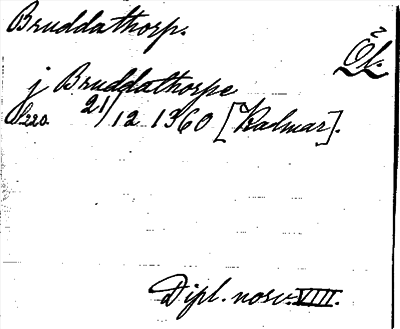 Bruddathorp.
Öl.
j Bruddathorpe
S. 220. 21/12 1360 [Kalmar].
Dipl. norv. VIII.